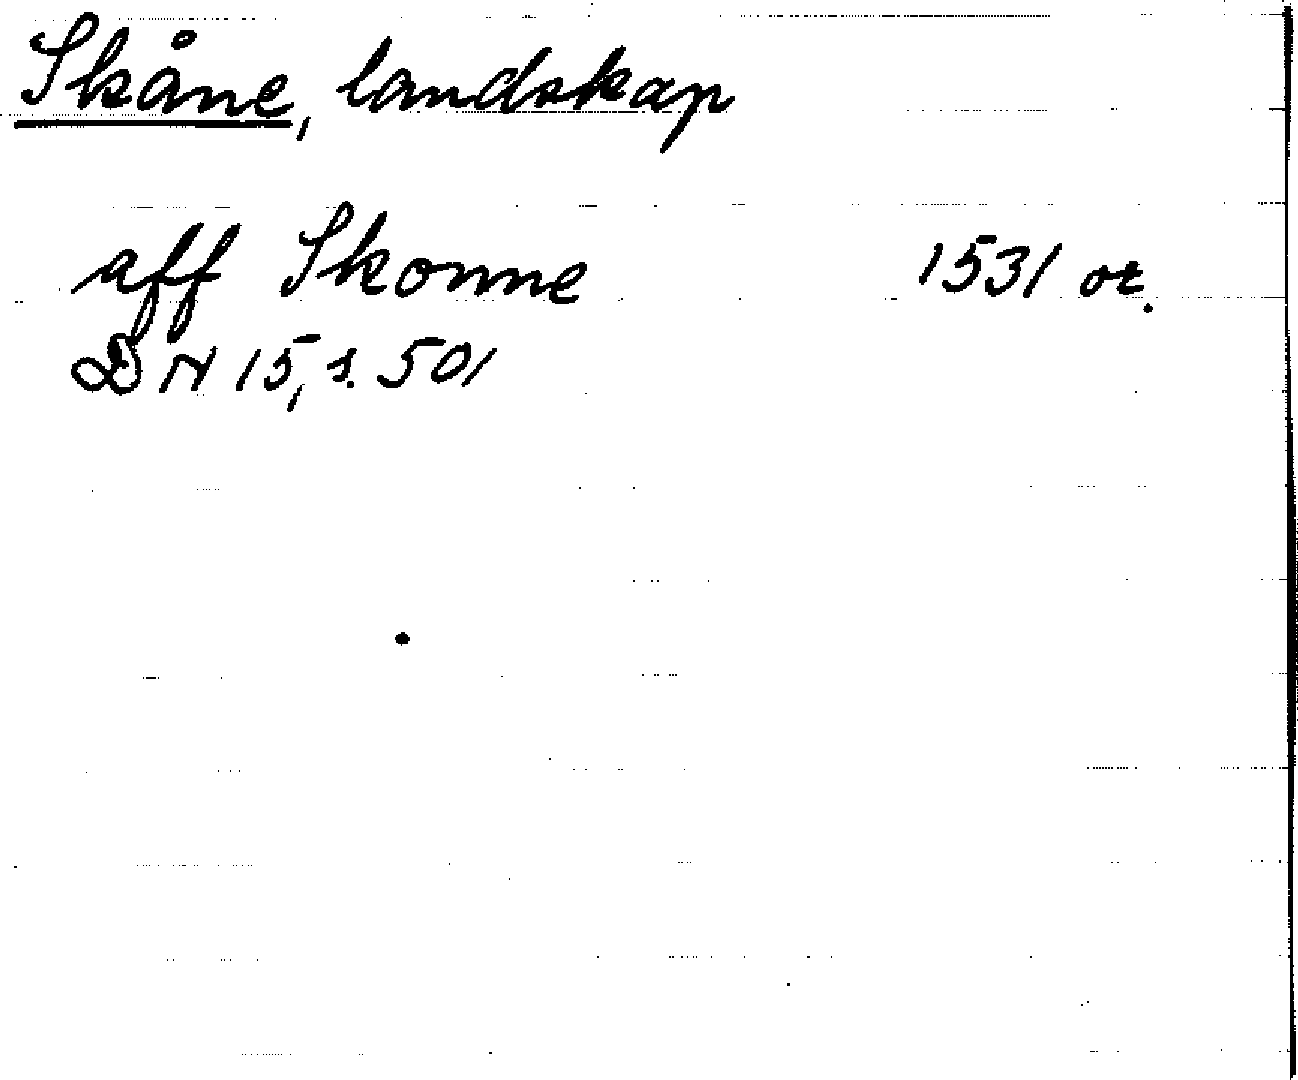 Skåne, landskap
aff Skonne 1531 or.
DN 15, s. 501